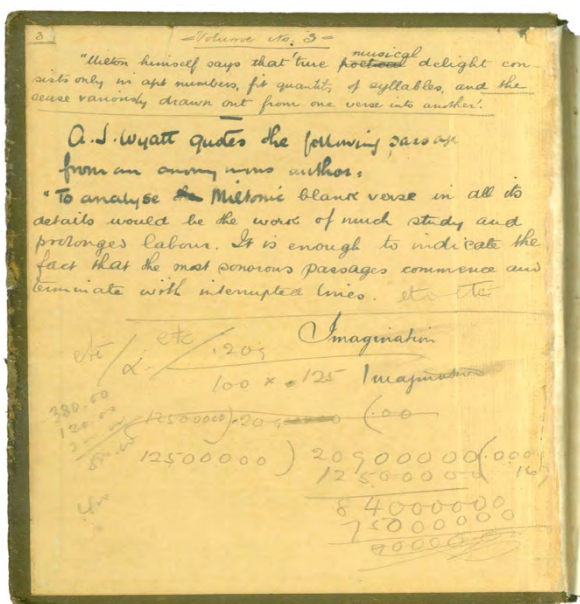 3
Volume No. 3
"Milton himself says that 'true poetical musical delight con-
sists only in apt numbers, fit quantity of syllables, and the
sense variously drawn out from one verse into another'.
A. J. Wyatt quotes the following passage
from an anonymous author:
"To analyse the Miltonic blank verse in all its
details would be the work of much study and
prolonged labour. It is enough to indicate the
fact that the most sonorous passages commence and
terminate with interrupted lines. etc etc
etc
etc
.209
Imagination
100 × .125
Imagination
380.00
120.00
12500000).209 (.00
500.00
12500000 ) 20900000(.000
16
12500000
84000000
75000000
9000000